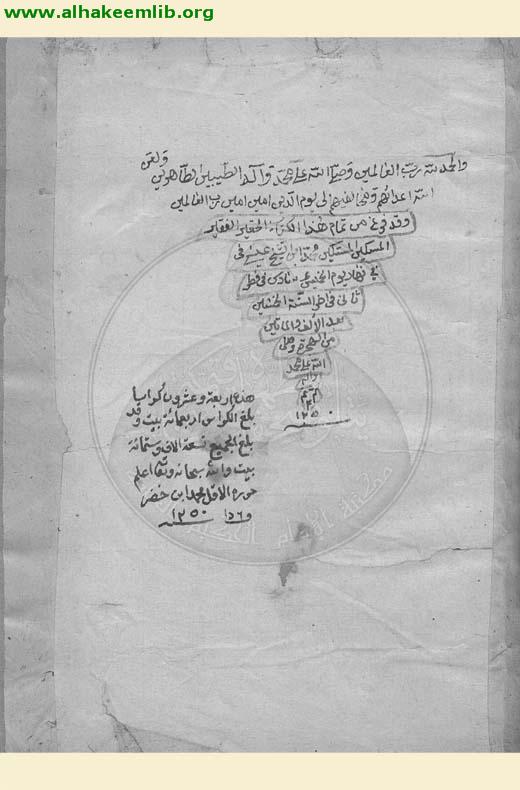 www.alhakeemlib.org
والحمد لله رب العالمين وصلى الله على محمد وآله الطيبين الطاهرين ولعن
الله اعدائهم الى يوم الدين امين امين رب العالمين
وقد فرغ من تمام هذا الحقير الفقير
المسكين المستكين ابن الشيخ عيسى
في نهار يوم الخميس
ثاني في السنة الخمسين
بعد الألف والماتين
من الهجرة وصلى
الله على محمد
واله
١٢٥٠
هذه اربعة وعشرون كراسا
بلغ الكراس اربعمائة بيت وقد
بلغ الجميع تسعة الاف وستمائة
بيت والله سبحانه وتعالى اعلم
حرره الاقل محمد ابن خضر
١٢٥٠